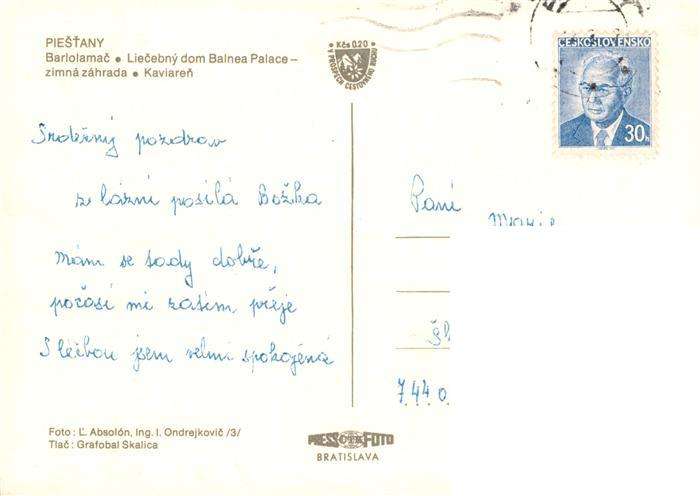 PIEŠŤANY
Barlolamač ● Liečebný dom Balnea Palace –
zimná záhrada ● Kaviareň
Kčs 0.20
V PROSPECH CESTOVNÉHO RUCHU
ČESKOSLOVENSKO
30h
Srdečný pozdrav
z lázní posílá Božka
Mám se tady dobře,
počasí mi zatím přeje
S léčbou jsem velmi spokojená
Paní
744 0
Foto : Ľ. Absolón, Ing. I. Ondrejkovič /3/
Tlač : Grafobal Skalica
PRESSFOTO
BRATISLAVA